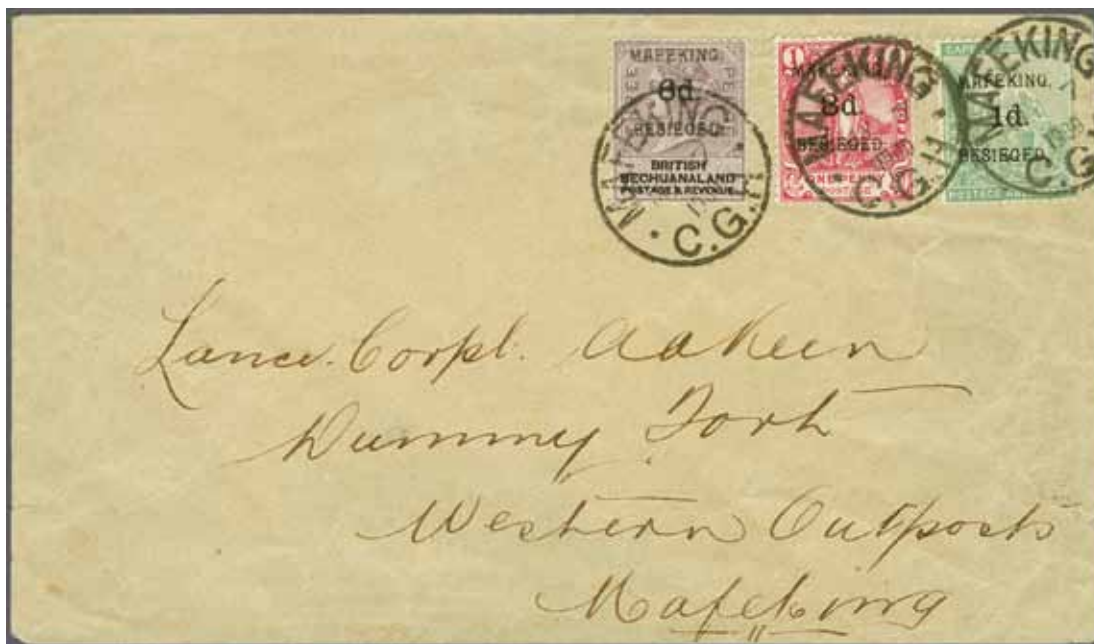 MAFEKING.
6d.
BESIEGED.
BRITISH
BECHUANALAND
POSTAGE & REVENUE
MAFEKING
C.G.H.
1
MAFEKING.
3d.
BESIEGED.
ONE PENNY
MAFEKING
C.G.H.
MAFEKING.
1d.
BESIEGED.
MAFEKING
C.G.
Lance. Corpl. Aakeen
Dummy Fort
Western Outposts
Mafeking